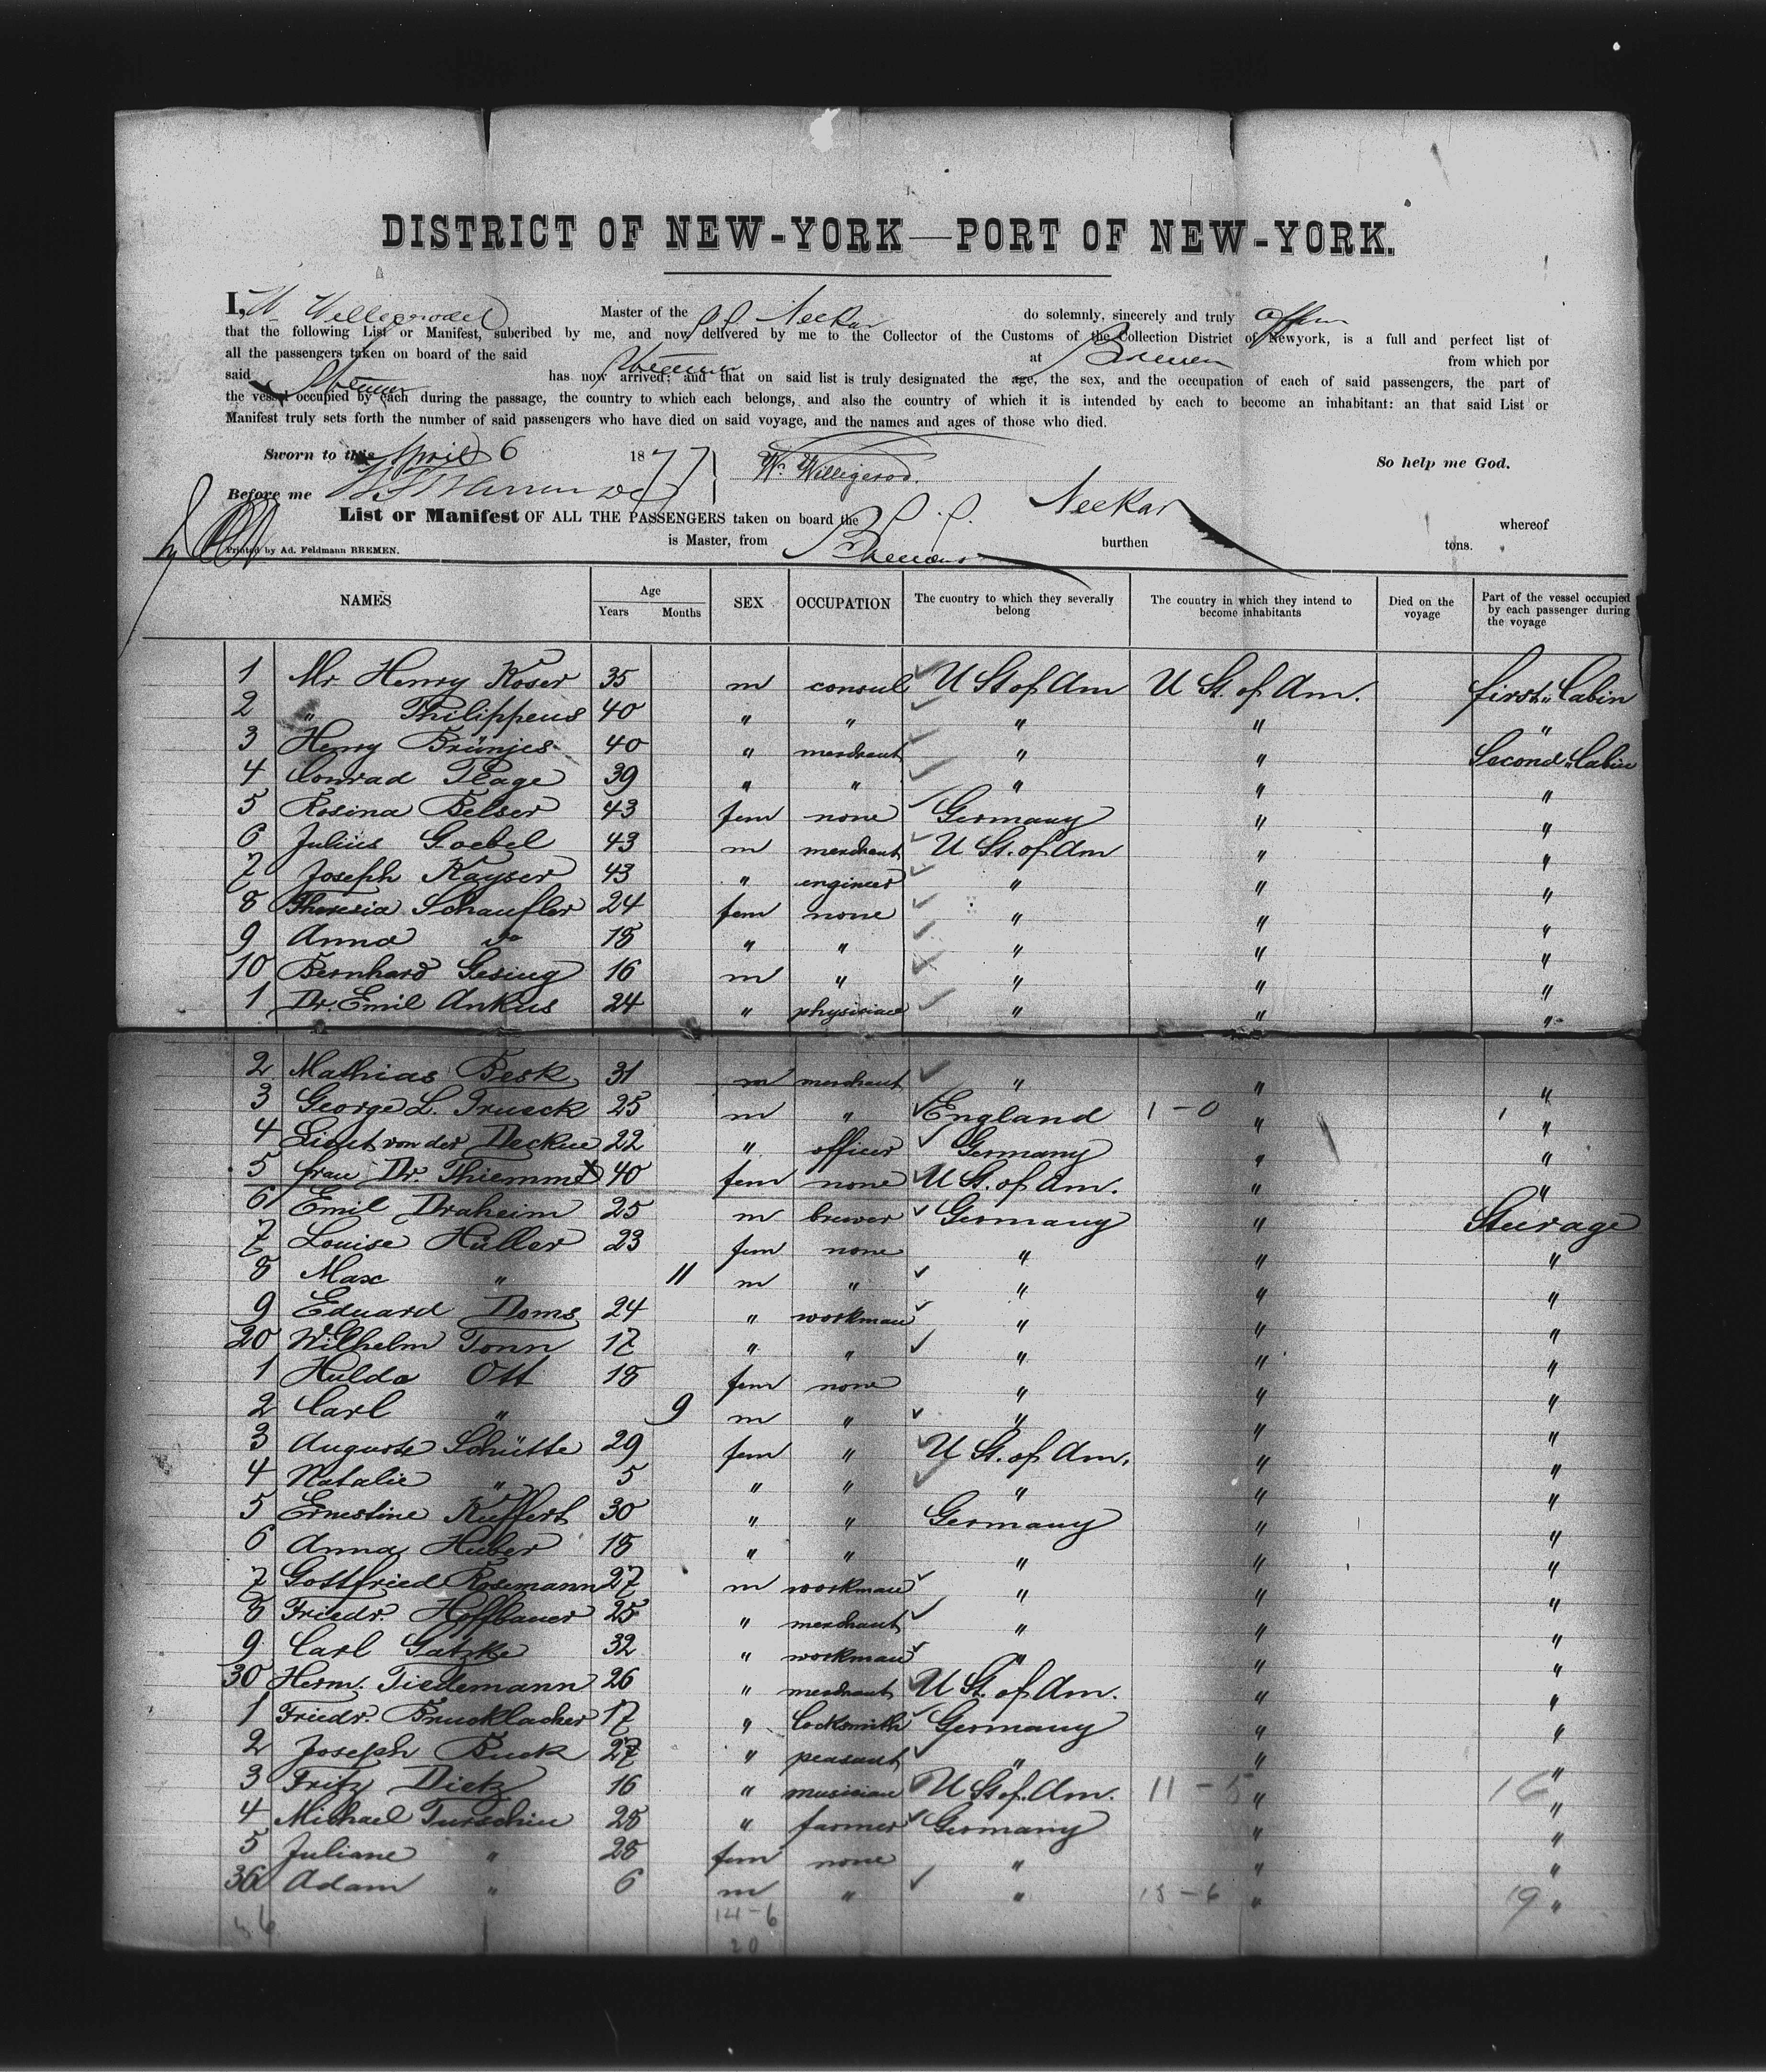 DISTRICT OF NEW-YORK—PORT OF NEW-YORK.
I, W Willigerod Master of the S. S. Neckar do solemnly, sincerely and truly affirm
that the following List or Manifest, suberibed by me, and now delivered by me to the Collector of the Customs of the Collection District of Newyork, is a full and perfect list of
all the passengers taken on board of the said Steamer at Bremen from which por
said Steamer has now arrived; and that on said list is truly designated the age, the sex, and the occupation of each of said passengers, the part of
the vessel occupied by each during the passage, the country to which each belongs, and also the country of which it is intended by each to become an inhabitant: an that said List or
Manifest truly sets forth the number of said passengers who have died on said voyage, and the names and ages of those who died.
Sworn to this April 6 1877 W. Willigerod. So help me God.
Before me
List or Manifest OF ALL THE PASSENGERS taken on board the S. S. Neckar whereof
is Master, from Bremen burthen tons.
Printed by Ad. Feldmann BREMEN.
NAMES Age Years Months SEX OCCUPATION The cuontry to which they severally belong The country in which they intend to become inhabitants Died on the voyage Part of the vessel occupied by each passenger during the voyage
1 Mr Henry Koser 35 m consul U St of Am U St. of Am. first Cabin
2 " Philippeus 40 " " " " "
3 Henry Brünjes 40 " merchant " " Second Cabin
4 Conrad Plage 39 " " " " "
5 Rosina Belser 43 fem none Germany " "
6 Julius Goebel 43 m merchant U St. of Am " "
7 Joseph Kayser 43 " engineer " " "
8 Theresia Schaufler 24 fem none " " "
9 Anna do 18 " " " " "
10 Bernhard Gesing 16 m " " " "
1 Dr. Emil Ankus 24 " physician " " "
2 Mathias Besk 31 m merchant " " "
3 George L. Trusck 25 m " England 1-0 " 1 "
4 Lieut von der Decken 22 " officer Germany " "
5 frau Dr. Thiemme X 40 fem none U St. of Am. " "
6 Emil Draheim 25 m brewer Germany " Steerage
7 Louise Hüller 23 fem none " " "
8 Max " 11 m " " " "
9 Eduard Doms 24 " workman " " "
20 Wilhelm Tonn 17 " " " " "
1 Hulda Ott 18 fem none " " "
2 Carl " 9 m " " " "
3 Auguste Schütte 29 fem " U St. of Am. " "
4 Natalie " 5 " " " " "
5 Ernestine Kuffert 30 " " Germany " "
6 Anna Huber 18 " " " " "
7 Gottfried Rosemann 27 m workman " " "
8 Friedr. Hoffbauer 25 " merchant " " "
9 Carl Gatzke 32 " workman " " "
30 Herm. Tiedemann 26 " merchant U St. of Am. " "
1 Friedr. Brucklacher 17 " locksmith Germany " "
2 Joseph Buck 27 " peasant " " "
3 Fritz Dietz 16 " musician U St of Am. 11-5 " 16 "
4 Michael Turschin 28 " farmer Germany " "
5 Juliane " 28 fem none " " "
36 Adam " 6 m " " 13-6 " 19 "
36 14-6
20